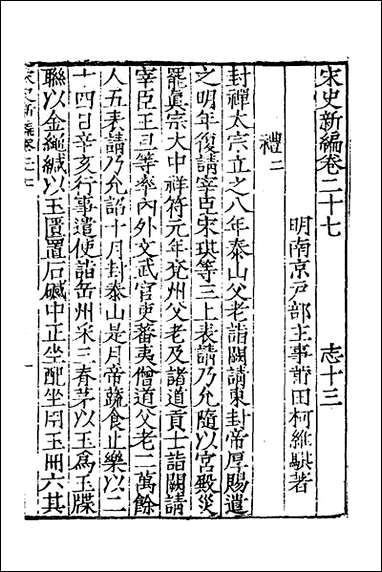 宋史新編卷二十七　志十三
明南京戶部主事莆田柯維騏著
禮二
封禪太宗立之八年泰山父老詣闕請東封帝厚賜遣
之明年復請宰臣宋琪等三上表請乃允隨以宮殿災
罷眞宗大中祥符元年兗州父老及諸道貢士詣闕請
宰臣王旦等率內外文武官吏蕃夷僧道父老二萬餘
人五表請乃允詔十月封泰山是月帝蔬食止樂以二
十四日辛亥行事遣使詣岳州采三脊茅以玉爲玉牒
聯以金繩緘以玉匱置石䃭中正坐配坐用玉冊六其